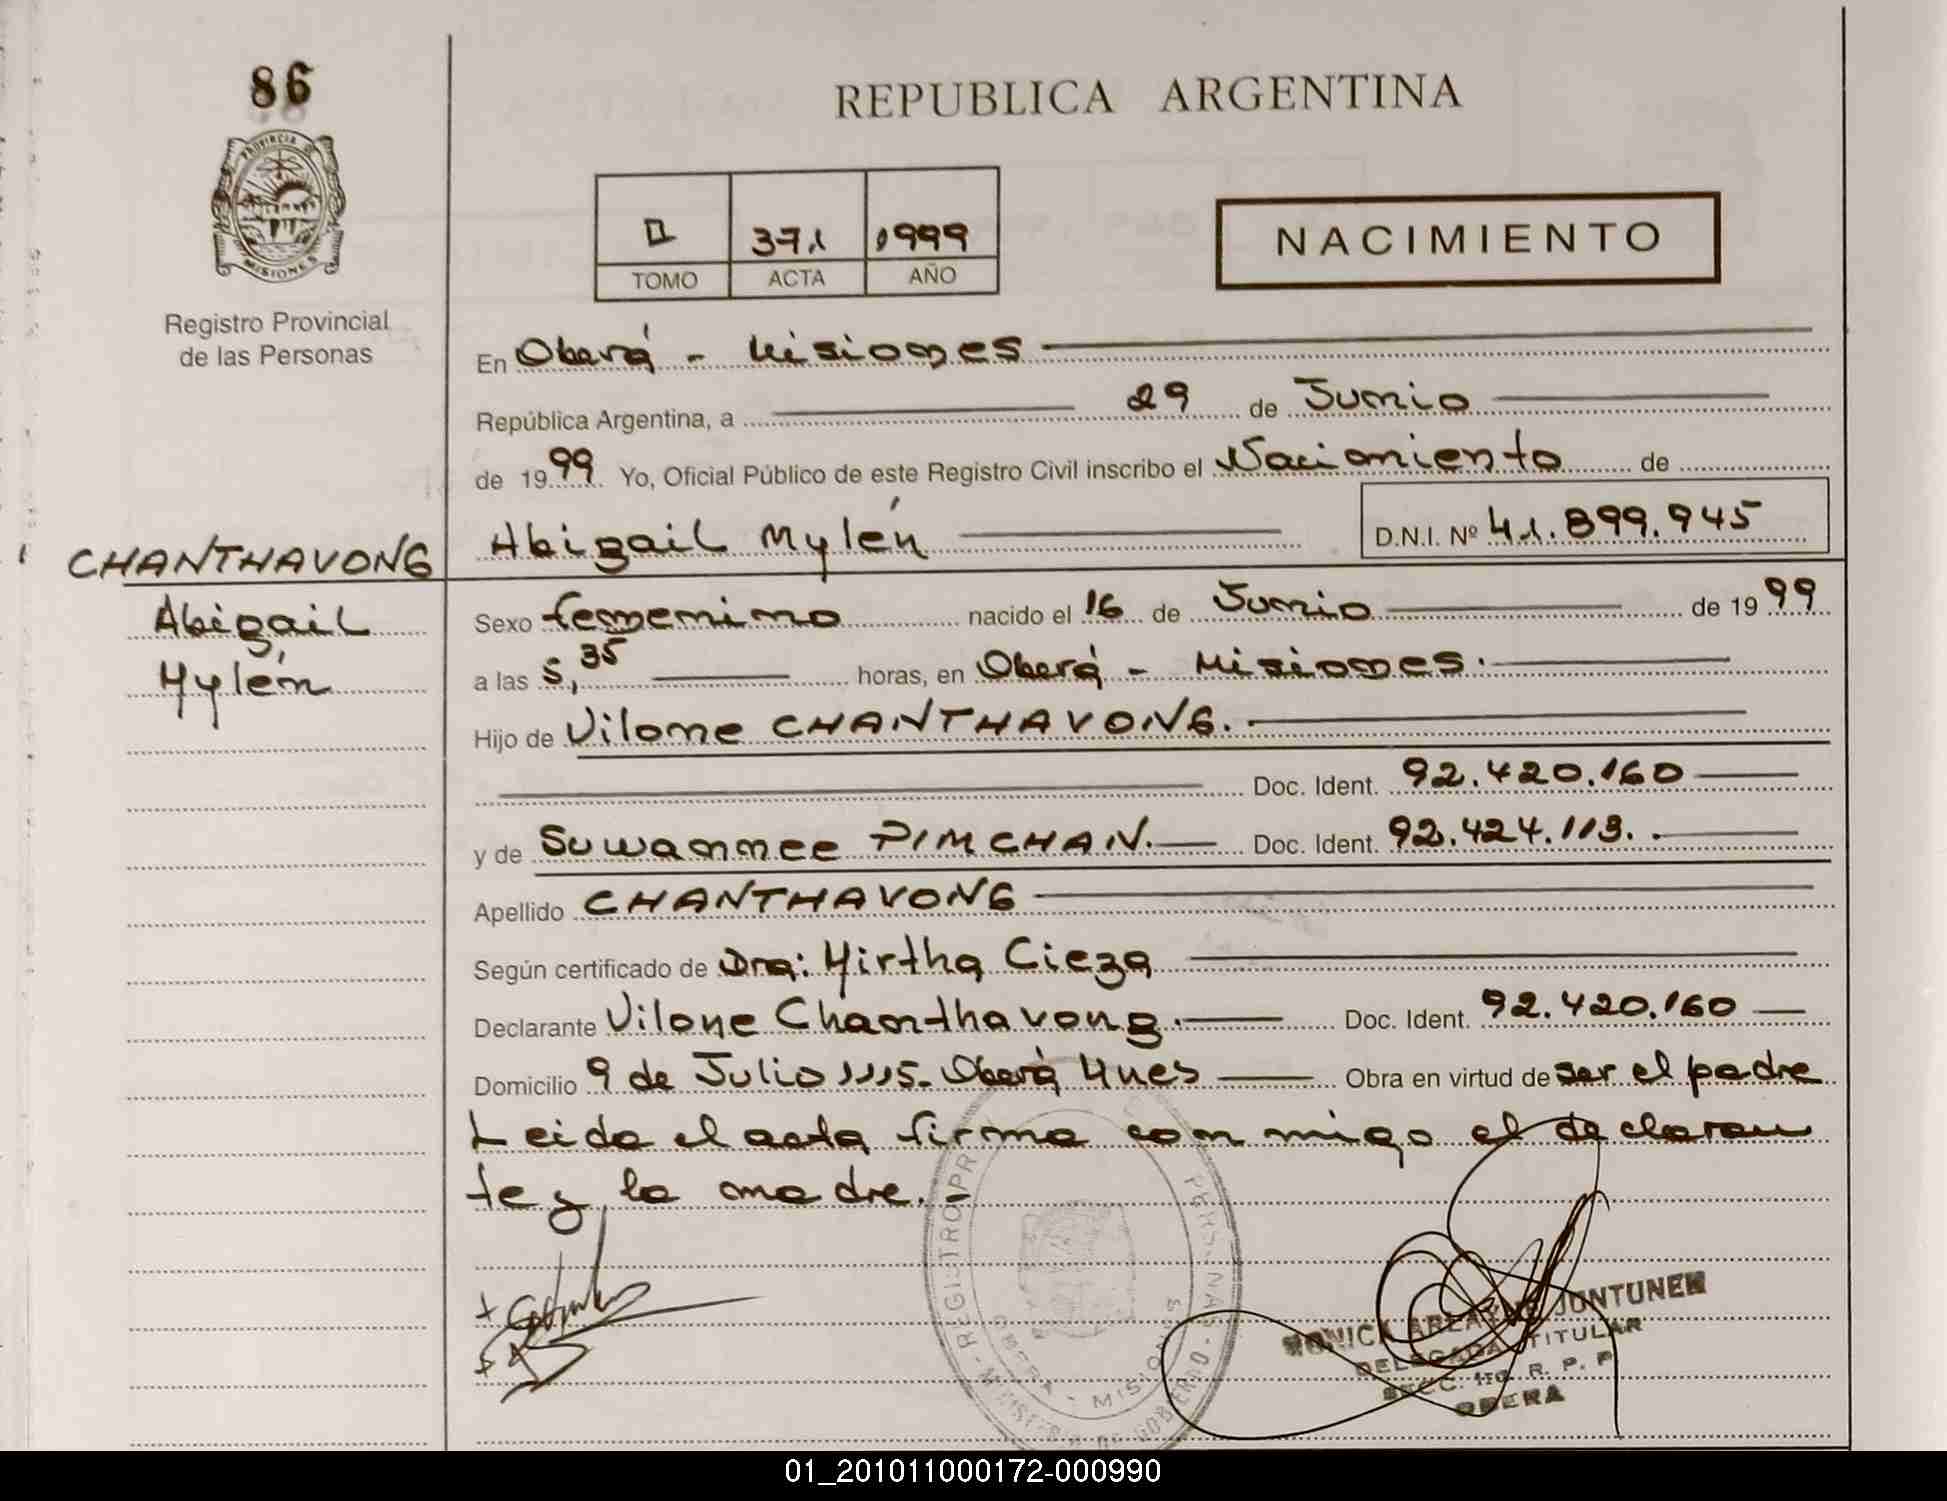 86
REPUBLICA ARGENTINA
PROVINCIA DE
MISIONES
Registro Provincial
de las Personas
II 371 1999
TOMO ACTA AÑO
NACIMIENTO
En Oberá - Misiones
República Argentina, a 29 de Junio
de 1999 Yo, Oficial Público de este Registro Civil inscribo el Nacimiento de
Abigail Mylén D.N.I. Nº 41.899.945
CHANTHAVONG
Abigail
Mylén
Sexo femenino nacido el 16 de Junio de 1999
a las 5,35 horas, en Oberá - Misiones.
Hijo de Vilome CHANTHAVONG.
Doc. Ident. 92.420.160
y de Suwannee PIMCHAN. Doc. Ident. 92.424.113.
Apellido CHANTHAVONG
Según certificado de Dra: Mirtha Cieza
Declarante Vilone Chanthavong. Doc. Ident. 92.420.160
Domicilio 9 de Julio 1115- Oberá Mnes Obra en virtud de ser el padre
Leida el acta firma conmigo el declaran
te y la madre.-
REGISTRO PR PERSONAS - MINISTERIO DE GOBIERNO
OBERA - MISIONES
MONICA JUNTUNEN
DELEGADA TITULAR
SECC. 1ra. R. P. P
OBERA
01_201011000172-000990